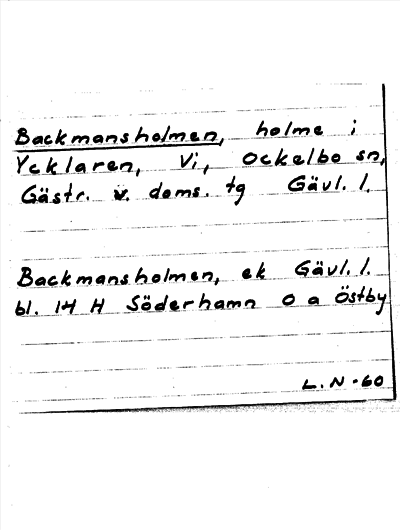 Backmansholmen, holme i
Ycklaren, Vi, Ockelbo sn,
Gästr. v. doms. tg Gävl. l.
Backmansholmen, ek Gävl. l.
bl. 14 H Söderhamn O a Östby
L. N -60